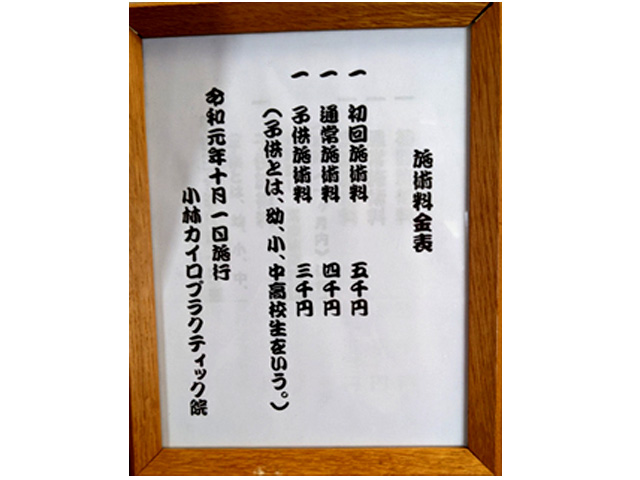 施術料金表
一 初回施術料 五千円
一 通常施術料 四千円
一 子供施術料 三千円
(子供とは、幼、小、中高校生をいう。)
令和元年十月一日施行
小林カイロプラクティック院